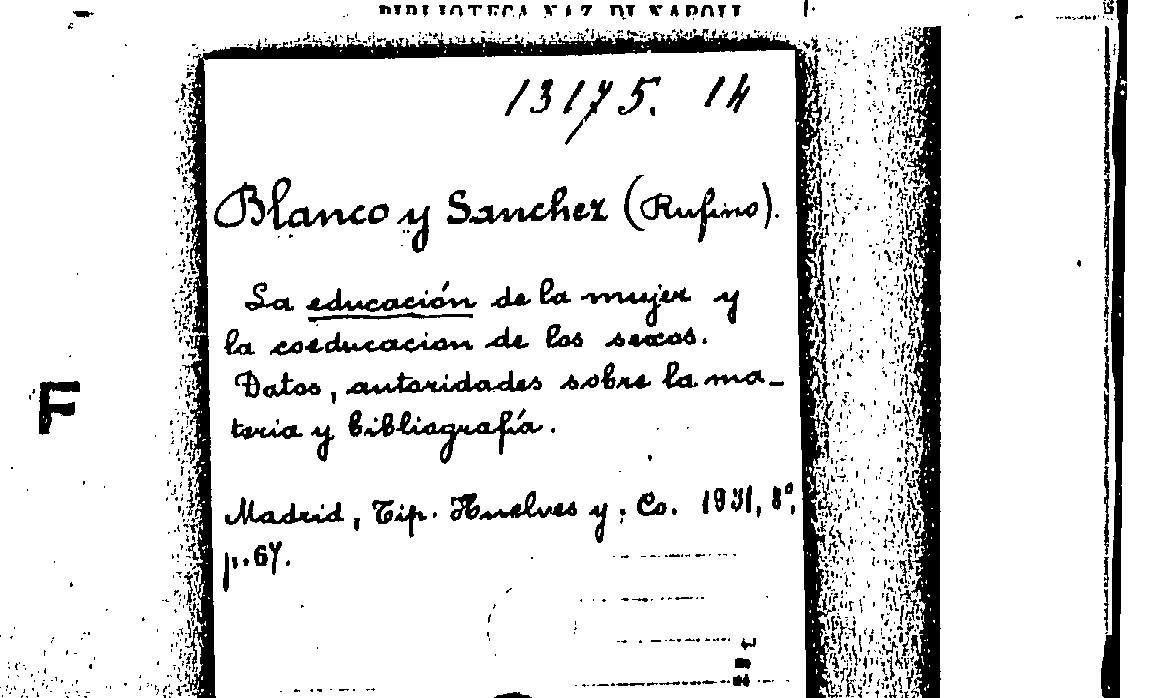 BIBLIOTECA NAZ. DI NAPOLI
13175. 14
Blanco y Sanchez (Rufino).
La educación de la mujer y
la coeducacion de los sexos.
Datos, autoridades sobre la ma-
teria y bibliografía.
Madrid, Tip. Huelves y. Co. 1931, 8º,
p. 67.
F